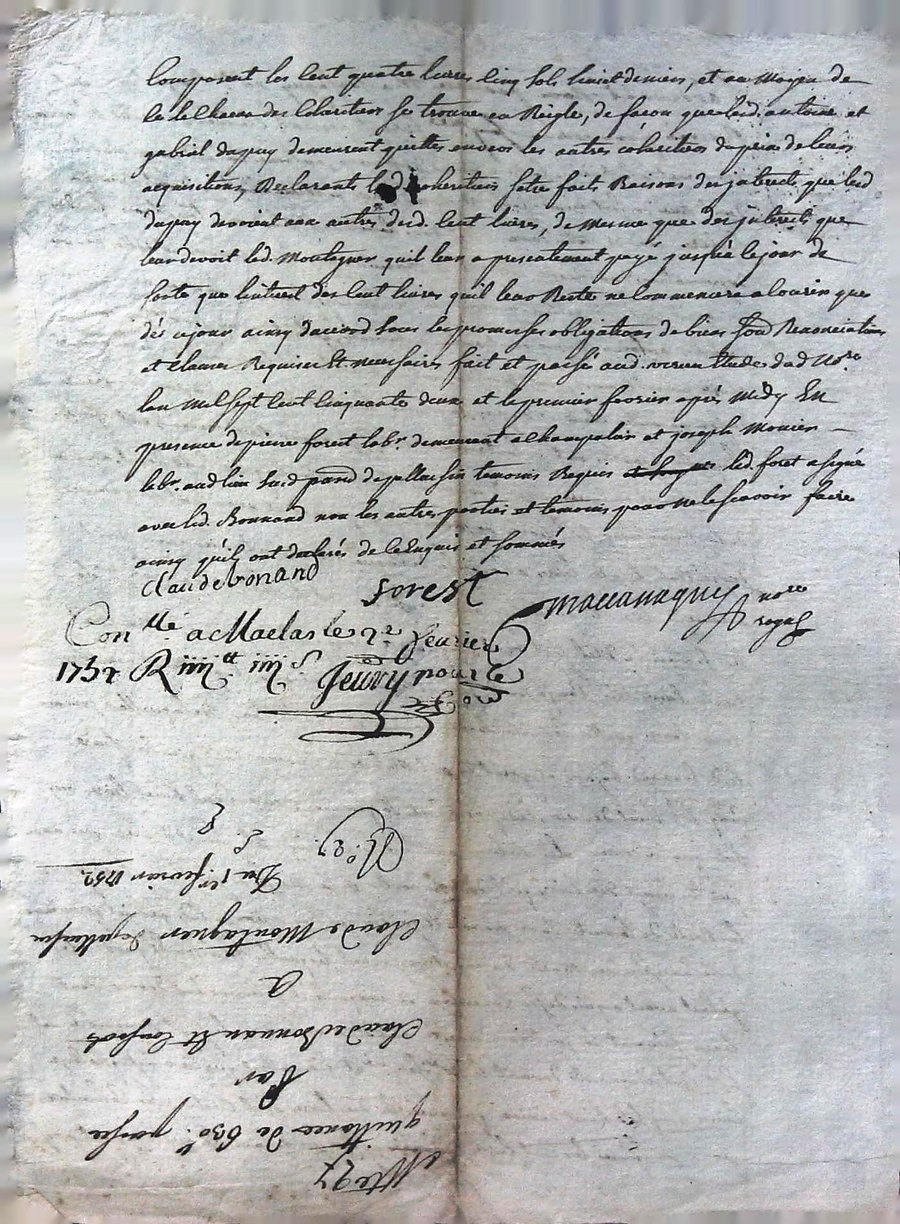 Composent les Cent quatre livres Cinq sols huict deniers, et au Moyen de
ce le Chacun des Coheritiers se trouve en Reigle, de facon que lesd. antoine et
gabriel dupuy demeurent quittes envers les autres coheritiers du prix de leurs
acquisitions, Declarants lesd. coheritiers s'etre faits Raisons des interests que lesd
dupuy devoient aux autres desd. Cent livres, de Mesme que des jnterests que
leur devoit led. Montagner quil leur a presentement payé jusques le jour de
sorte que lintrest des Cent livres quil leur Reste ne Commencera a Courir que
dès ce jour ainsy daccord sous les promesses obligations de biens Renonciations
et clauses Requises Et necessaires fait et passé aud. etude dud No.re
lan Mil Sept Cent Cinquante deux et le premier fevrier après Midy En
presence de pierre forest labr. demeurant a Champalin et joseph Monier
labr. aud lieu susd parr. de pellussin temoins Requis led. foret a signé
avec led. Bonnand non les autres parties et temoins pour ne le scavoir faire
ainsy quils ont declarés de ce Enquis et sommés
Claude bonand
forest
no.re
regal
Con.llé a Maclas le 2.r fevrier
1752 R iiii.tt iiii s
Jeury pour le
N.o 27.
Du 1.er fevrier 1752.
Claude Montagner de pellussin
A
Claude Bonnan Et Consorts
Par
quittance de 630.tt passée